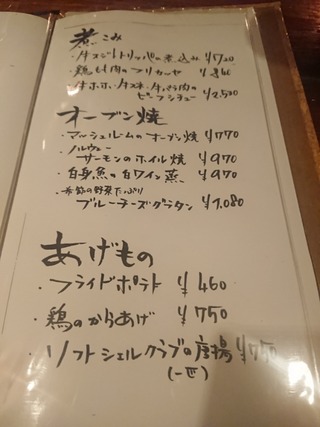 煮こみ
・牛スジとトリッパの煮込み ¥720
・鶏もも肉のフリカッセ ¥860
・牛ホホ、牛スネ、牛すね肉の
ビーフシチュー ¥2,500
オーブン焼
・マッシュルームのオーブン焼 ¥770
・ノルウェー
サーモンのホイル焼 ¥970
・白身魚の白ワイン蒸 ¥970
・季節の野菜たっぷり
ブルーチーズグラタン ¥1,080
あげもの
・フライドポテト ¥460
・鶏のからあげ ¥750
・ソフトシェルクラブの唐揚 ¥750
(一匹)